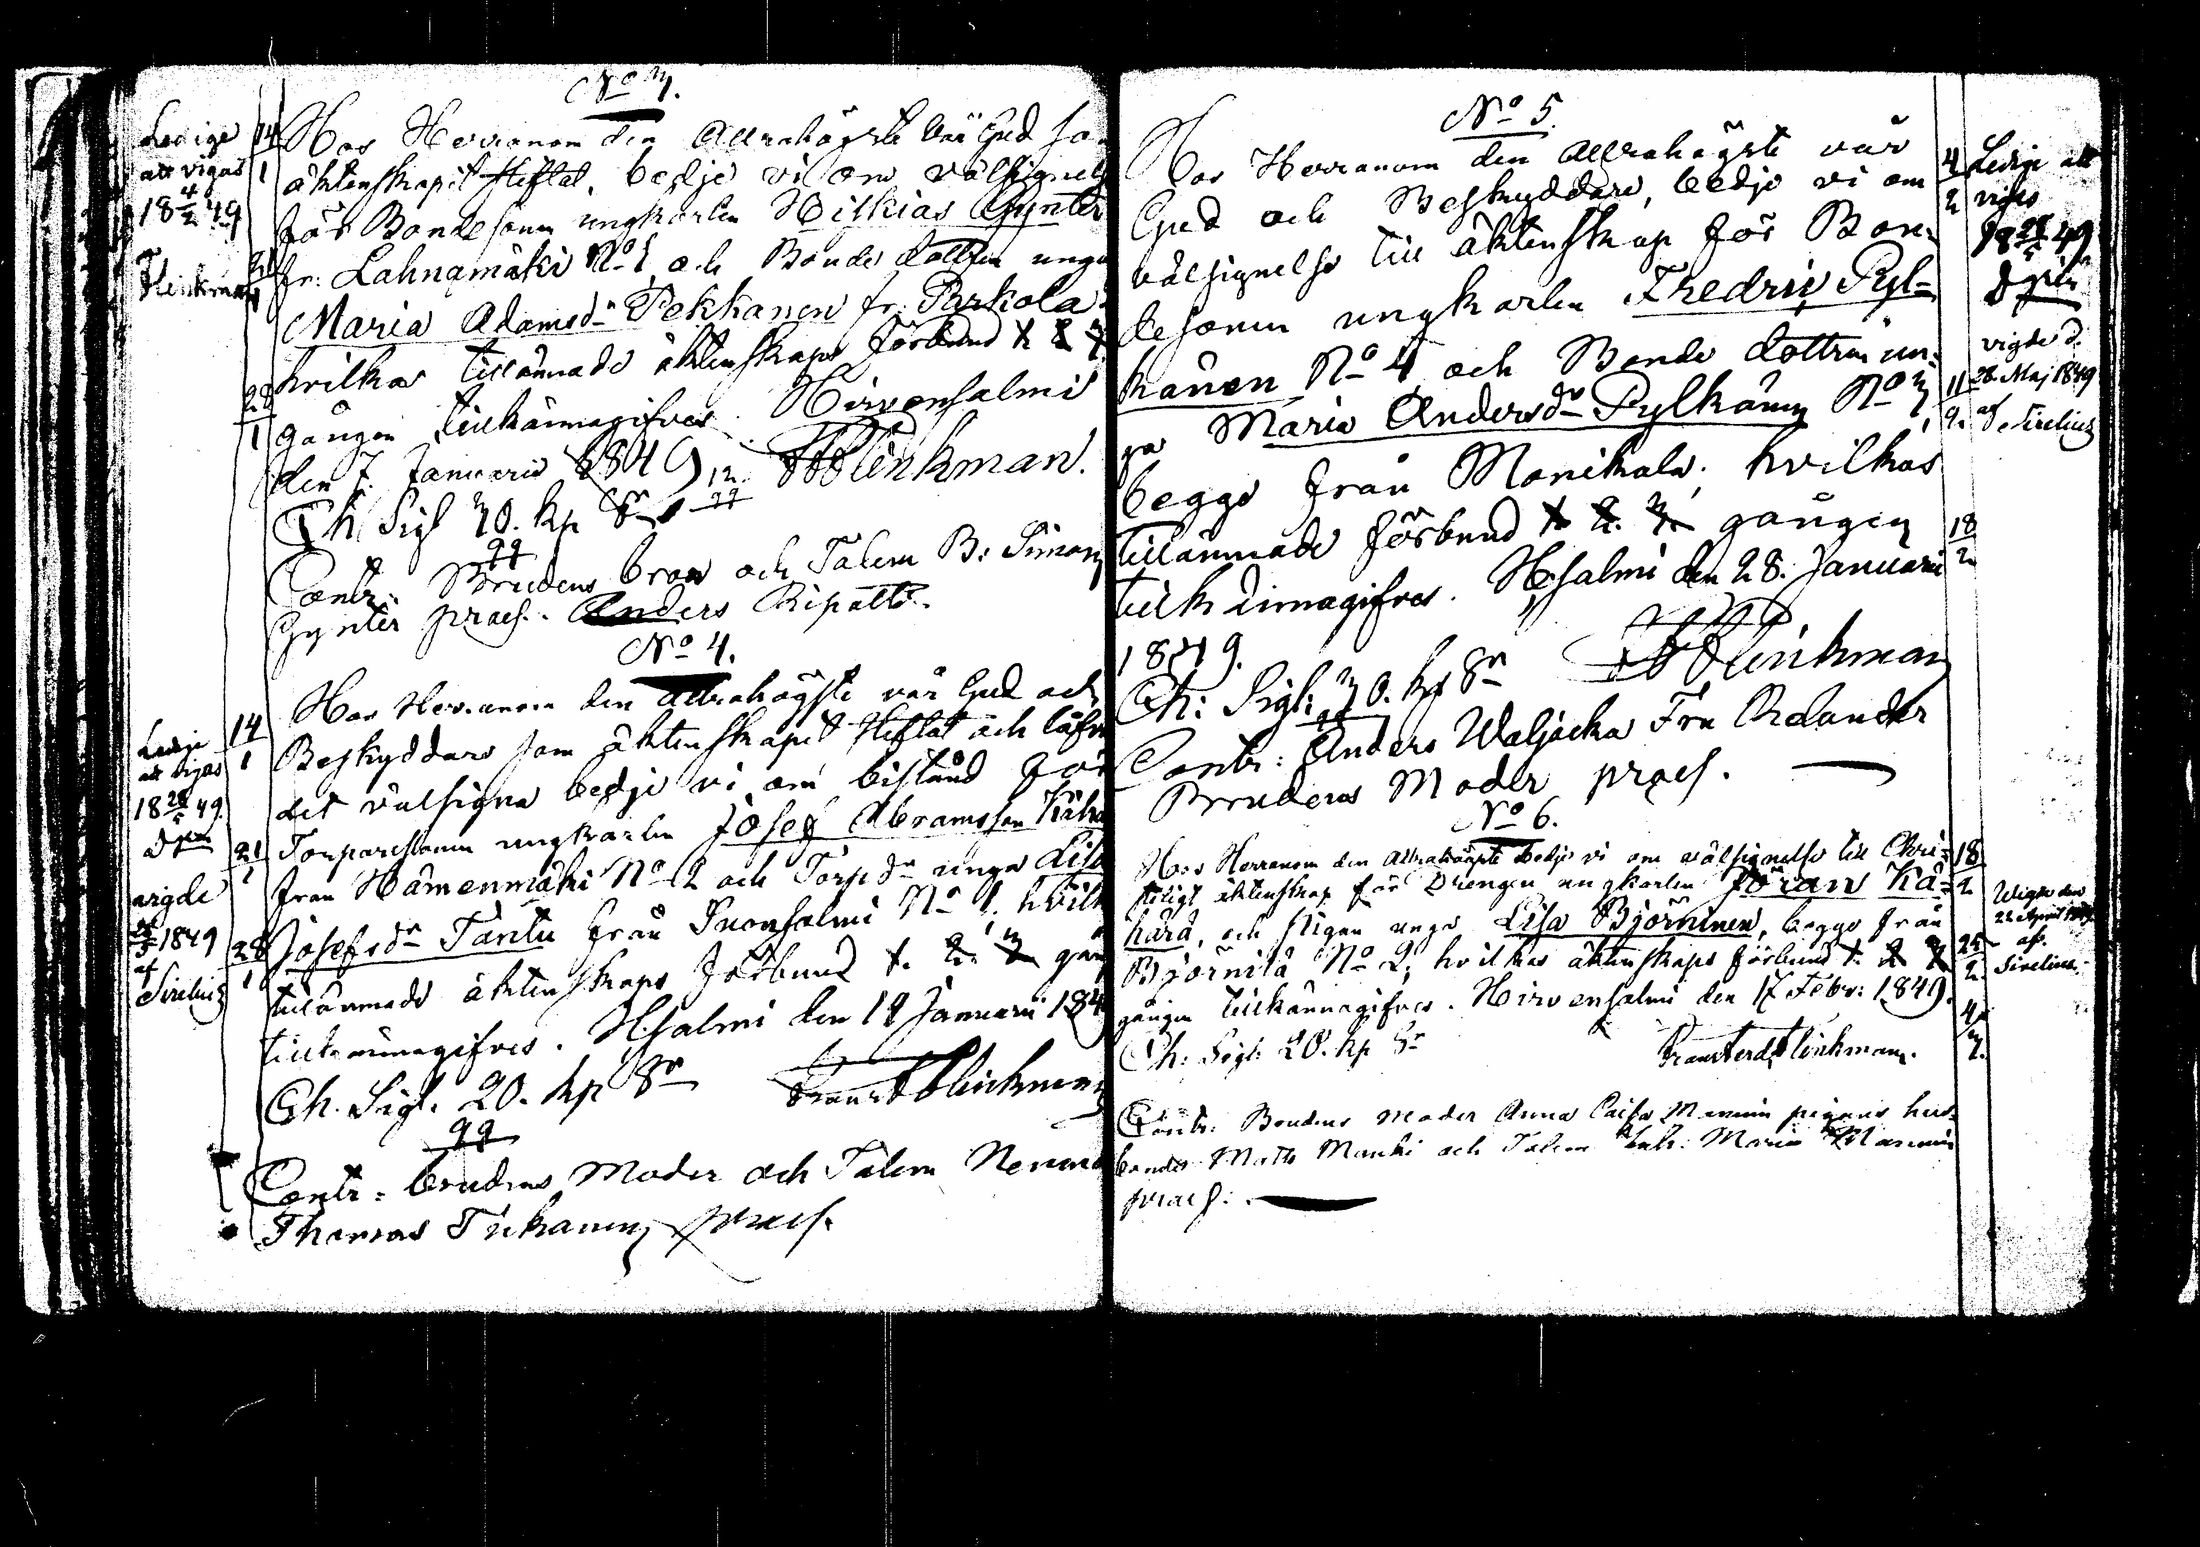 No 3.
Ledige
att vigas
18 4/2 49
Flinkman
14
1
21
1
28
1
Hos Herranom den Allrahögste vår Gud so
äktenskapit stiftat, bedje vi om välsignels
för Bondesonen ungkarlen Hilkias Gynter
fr. Lahnamäki No 1 och Bonde dottren unga
Maria Adamsdr Pekkanen fr. Parkola
hvilkas tillämnade äktenskaps förbund 1 2 3
gången tillkännagifves. Hirvensalmi
den 7. Januarii 1849. Flinkman.
Ch. Sigl 30. kp Sr
Contr. Brudens bror och Talem B: Simon
Gynter præs. Anders Ripatti.
No 4.
Ledige
att vigas
18 28/5 49.
vigde
28/5 1849
af
Sirelius
14
1
21
1
28
1
Hos Herranom den allrahögste vår Gud och
Beskyddare som äktenskapet stiftat och läfv
det välsigna bedje vi om bistånd för
Torparesonen ungkarlen Josef Abramsson
från Hämenmäki No 2 och Torp dr unga Lisa
Josefsdr Tantu från Suonsalmi No 1. hvilk
tillämnade äktenskaps förbund 1. 2. 3 gång
tillkännagifves. H:salmi den 14 Januarii 184
Ch. Sigl. 20. kp Sr Flinkman
Contr: brudens Moder och Talem
Thomas præs.
No 5.
Hos Herranom den allrahögste vår
Gud och Beskyddare, bedje vi om
välsignelse till äktenskap för Bon-
desonen ungkarlen Fredric Pyl-
känen No 4 och Bonde dottren un-
ga Maria Andersdr Pylkänen No 3,
begge från Monikala, hvilkas
tillämnade förbund 1 2. 3. gången
tillkännagifves. H:salmi den 28. Januarii
1849. Flinkman
Ch: Sigl: 30. kp Sr
Contr: Anders Waljacka Fru
Brudens Moder præs.
4
2
11
2.
18
2
Ledige att
vigas
18 28/5 49.
vigde d.
28. Maj 1849
af Sirelius
No 6.
Hos Herranom den allrahögste bedje vi om välsignelse till Chri-
steligt äktenskap för Drengen ungkarlen Jöran Kä-
härä, och Pigan unga Lisa Björninen, begge från
Björnilä No 2, hvilkas äktenskaps förbund 1. 2 3
gången tillkännagifves. Hirvensalmi den 17 Febr: 1849.
Ch: Sigl: 20. kp Sr Flinkman.
Contr: Brudens moder Anna Caisa pigans hus-
bonde Math och Talem Maria
præs:
18
2
25
2.
4
3.
Wigde den
22 April 1849
af.
Sirelius.